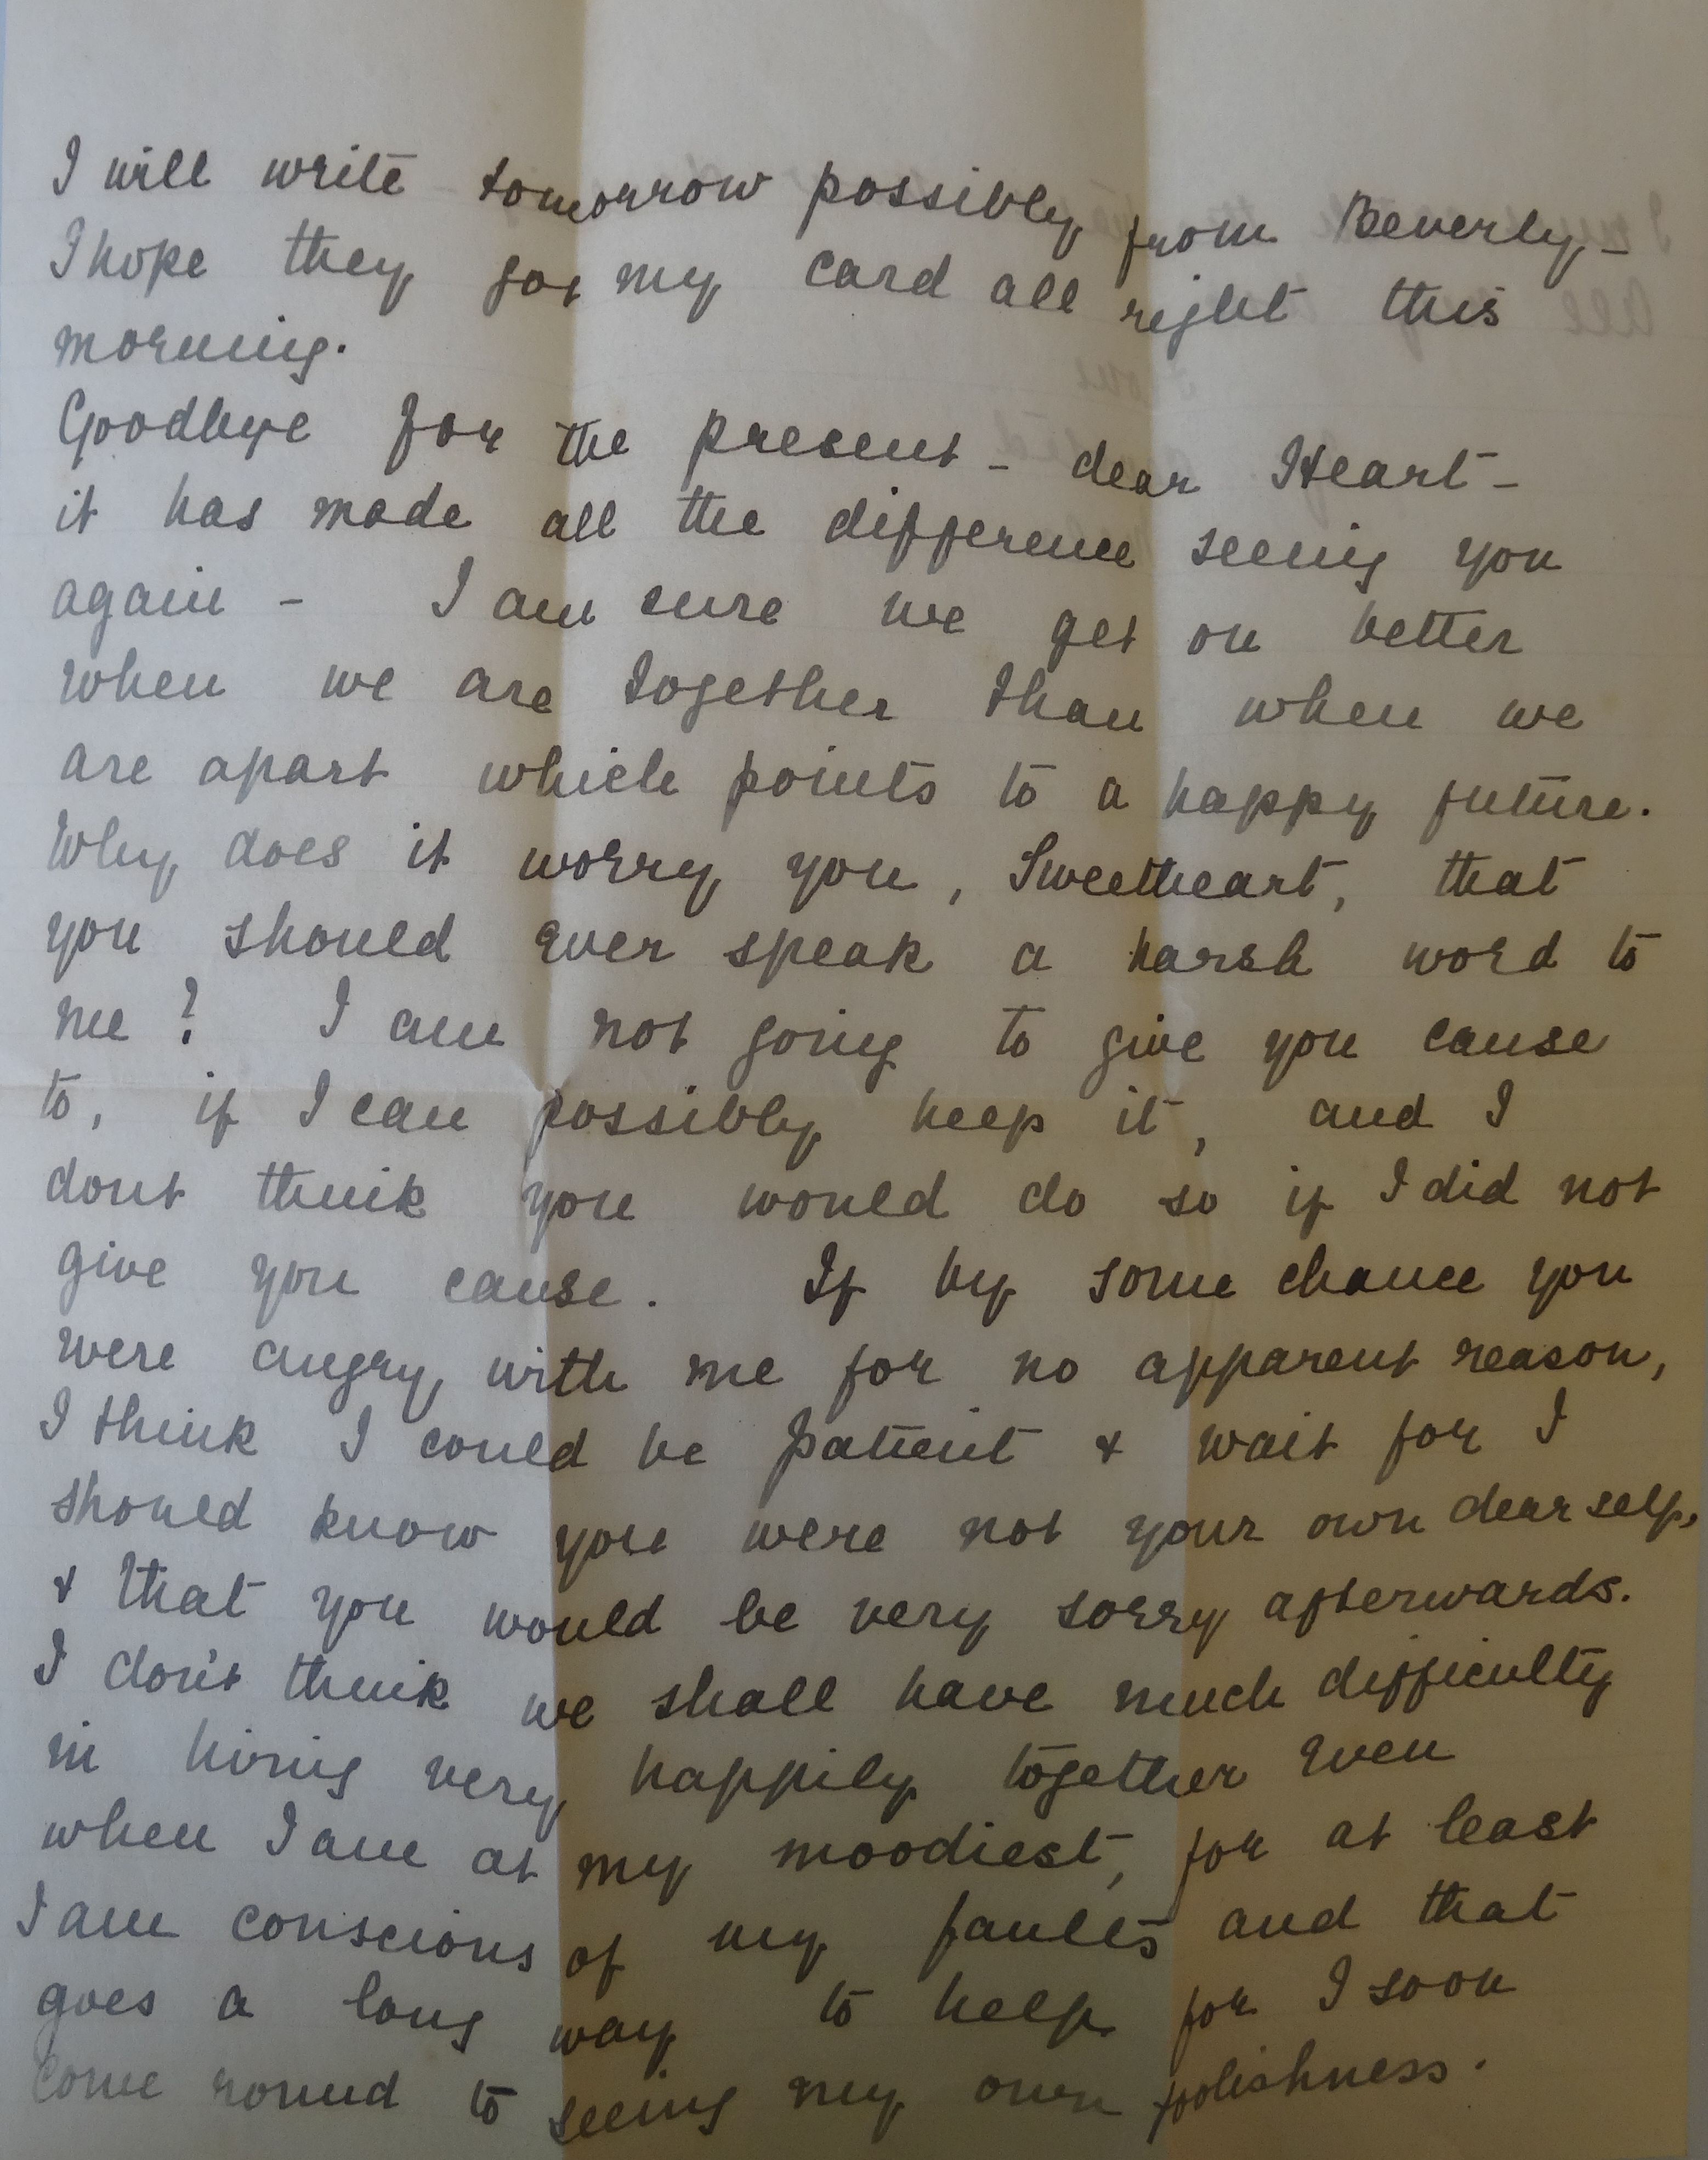 I will write tomorrow possibly from Beverly -
I hope they got my card all right this
morning.
Goodbye for the present - dear Heart -
it has made all the difference seeing you
again - I am sure we get on better
when we are together than when we
are apart which points to a happy future.
Why does it worry you, Sweetheart, that
you should ever speak a harsh word to
me? I am not going to give you cause
to, if I can possibly help it, and I
dont think you would do so if I did not
give you cause. If by some chance you
were angry with me for no apparent reason,
I think I could be patient & wait for I
should know you were not your own dear self,
& that you would be very sorry afterwards.
I don't think we shall have much difficulty
in living very happily together even
when I am at my moodiest, for at least
I am conscious of my faults and that
goes a long way to help for I soon
come round to seeing my own foolishness.